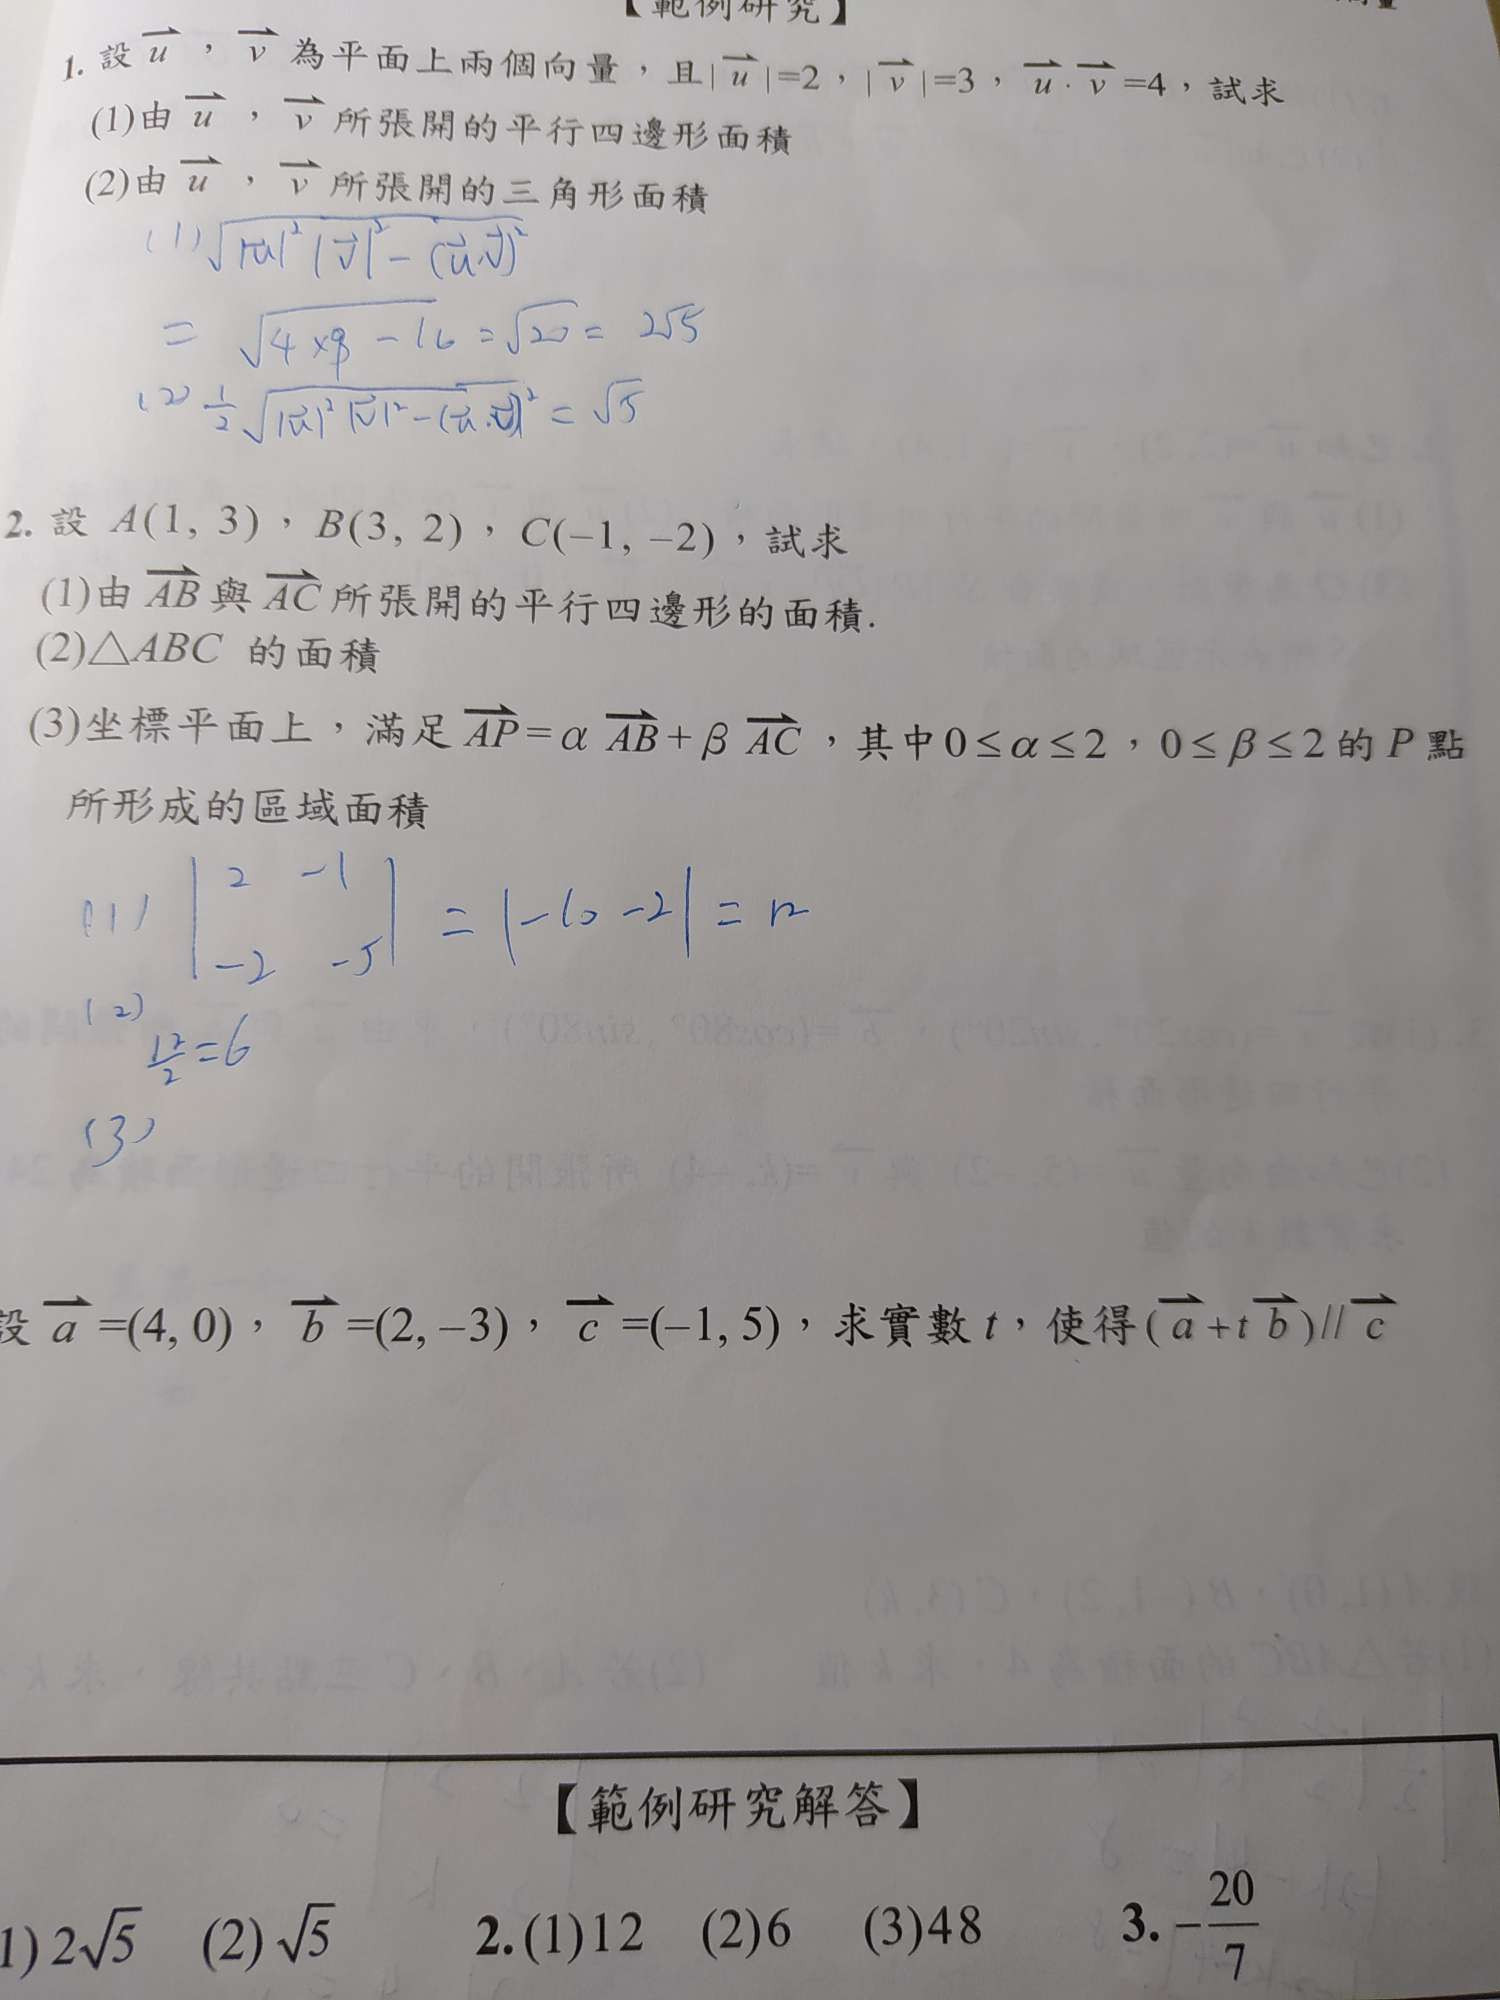 【範例研究】
1. 設 u，v 為平面上兩個向量，且|u|=2，|v|=3，u·v=4，試求
(1)由 u，v 所張開的平行四邊形面積
(2)由 u，v 所張開的三角形面積
(1) √|u|²|v|²-(u·v)²
= √4×9-16 = √20 = 2√5
(2) 1/2 √|u|²|v|²-(u·v)² = √5
2. 設 A(1, 3)，B(3, 2)，C(–1, –2)，試求
(1)由 AB 與 AC 所張開的平行四邊形的面積.
(2)△ABC 的面積
(3)坐標平面上，滿足 AP=α AB+β AC，其中0≤α≤2，0≤β≤2的 P 點
所形成的區域面積
(1) |2 -1
-2 -5| = |-10-2| = 12
(2)
12/2=6
(3)
設 a=(4, 0)，b=(2, –3)，c=(–1, 5)，求實數 t，使得(a+t b)//c
【範例研究解答】
1) 2√5 (2) √5 2.(1)12 (2)6 (3)48 3. -20/7